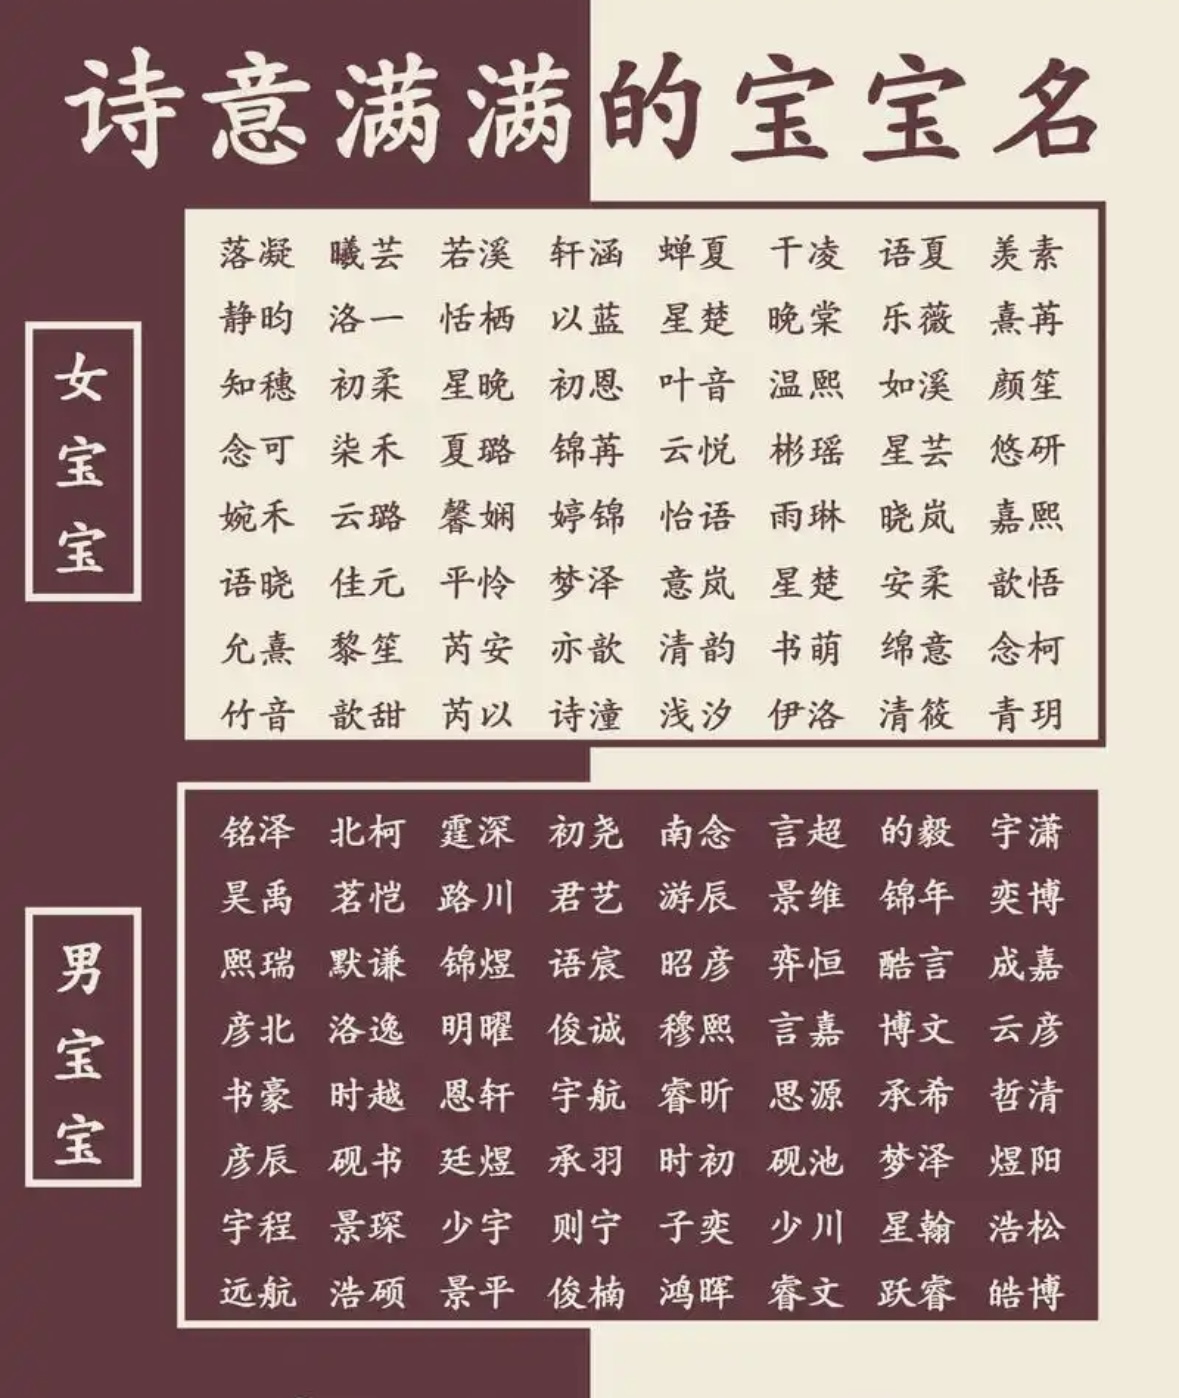 诗意满满的宝宝名
女宝宝
落凝 曦芸 若溪 轩涵 蝉夏 干凌 语夏 羡素
静昀 洛一 恬栖 以蓝 星楚 晚棠 乐薇 熹苒
知穗 初柔 星晚 初恩 叶音 温熙 如溪 颜笙
念可 柒禾 夏璐 锦苒 云悦 彬瑶 星芸 悠研
婉禾 云璐 馨娴 婷锦 怡语 雨琳 晓岚 嘉熙
语晓 佳元 平怜 梦泽 意岚 星楚 安柔 歆悟
允熹 黎笙 芮安 亦歆 清韵 书萌 绵意 念柯
竹音 歆甜 芮以 诗潼 浅汐 伊洛 清筱 青玥
男宝宝
铭泽 北柯 霆深 初尧 南念 言超 的毅 宇潇
昊禹 茗恺 路川 君艺 游辰 景维 锦年 奕博
熙瑞 默谦 锦煜 语宸 昭彦 弈恒 酷言 成嘉
彦北 洛逸 明曜 俊诚 穆熙 言嘉 博文 云彦
书豪 时越 恩轩 宇航 睿昕 思源 承希 哲清
彦辰 砚书 廷煜 承羽 时初 砚池 梦泽 煜阳
宇程 景琛 少宇 则宁 子奕 少川 星翰 浩松
远航 浩硕 景平 俊楠 鸿晖 睿文 跃睿 皓博